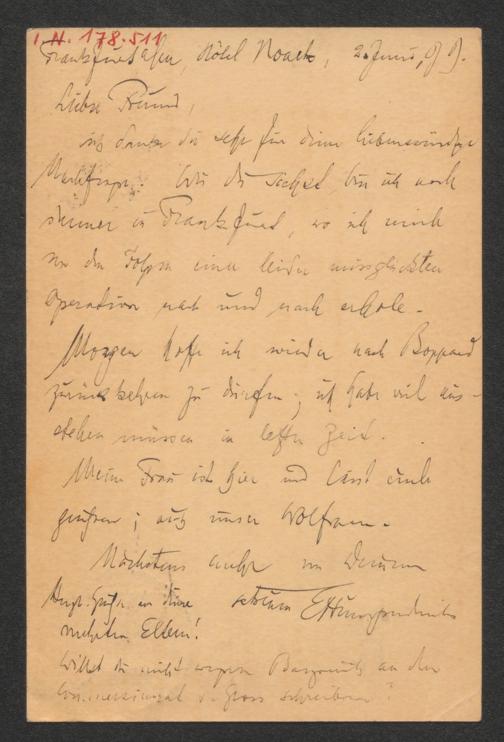 I. N. 178.511
Frankfurt a/Main, Hôtel Noack, 2. Juni, 09.
Lieber Freund,
ich danke dir sehr für deine liebenswürdige
Nachfrage. Wie du siehst, bin ich noch
immer in Frankfurt, wo ich mich
von den Folgen einer leider missglückten
Operation nach und nach erhole.
Morgen hoffe ich wieder nach Boppard
zurückkehren zu dürfen; ich habe viel aus-
stehen müssen in letzter Zeit.
Meine Frau ist hier und lässt euch
grüssen; auch unser Wolfram.
Nächstens mehr von Deinem
Herzl. Grüsse an deine
verehrten Eltern!
Willst du nicht wegen Bayreuth an den
Commerzienrat v. Gross schreiben?